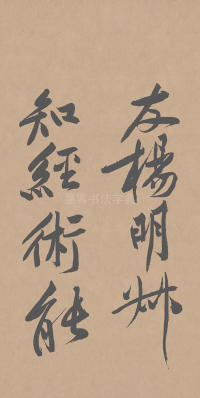 友楊明叔
知經術能
墨客书法字典